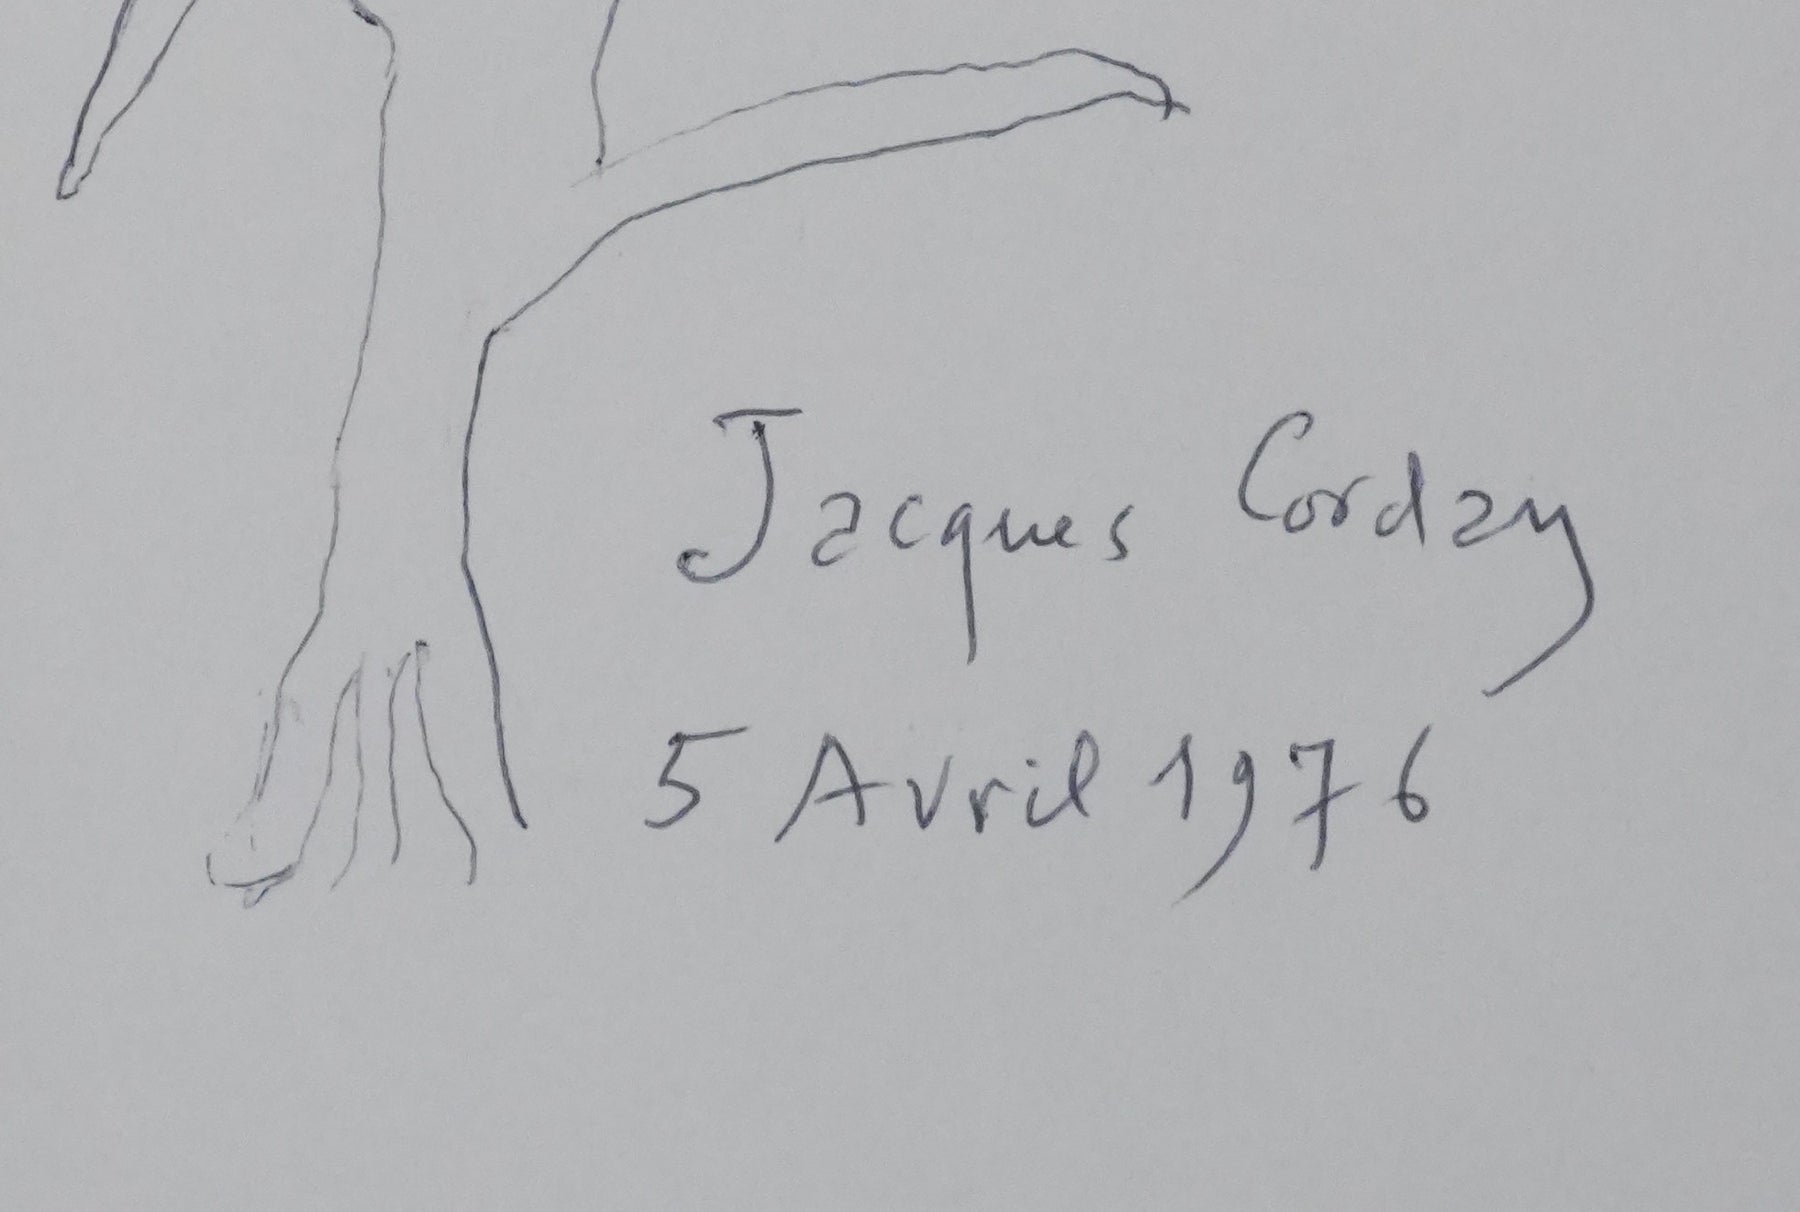 Jacques Corday
5 Avril 1976